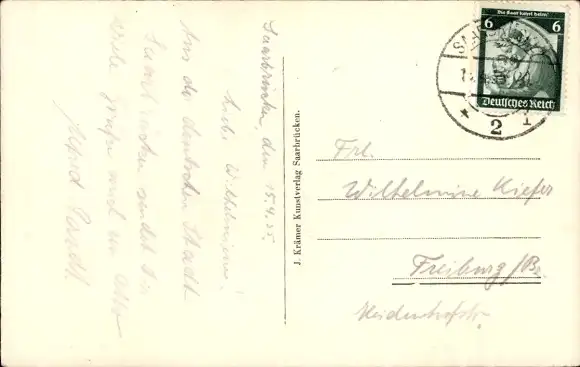 Saarbrücken, den 15.4.35.
Liebe Wilhelmine!
Aus der deutschen Stadt
Saarbrücken sendet Dir
viele Grüße
Alfred
J. Krämer Kunstverlag Saarbrücken.
Die Saar kehrt heim!
6 6
Deutsches Reich
* 2 1
Frl.
Wilhelmine Kiefer
Freiburg/Br.